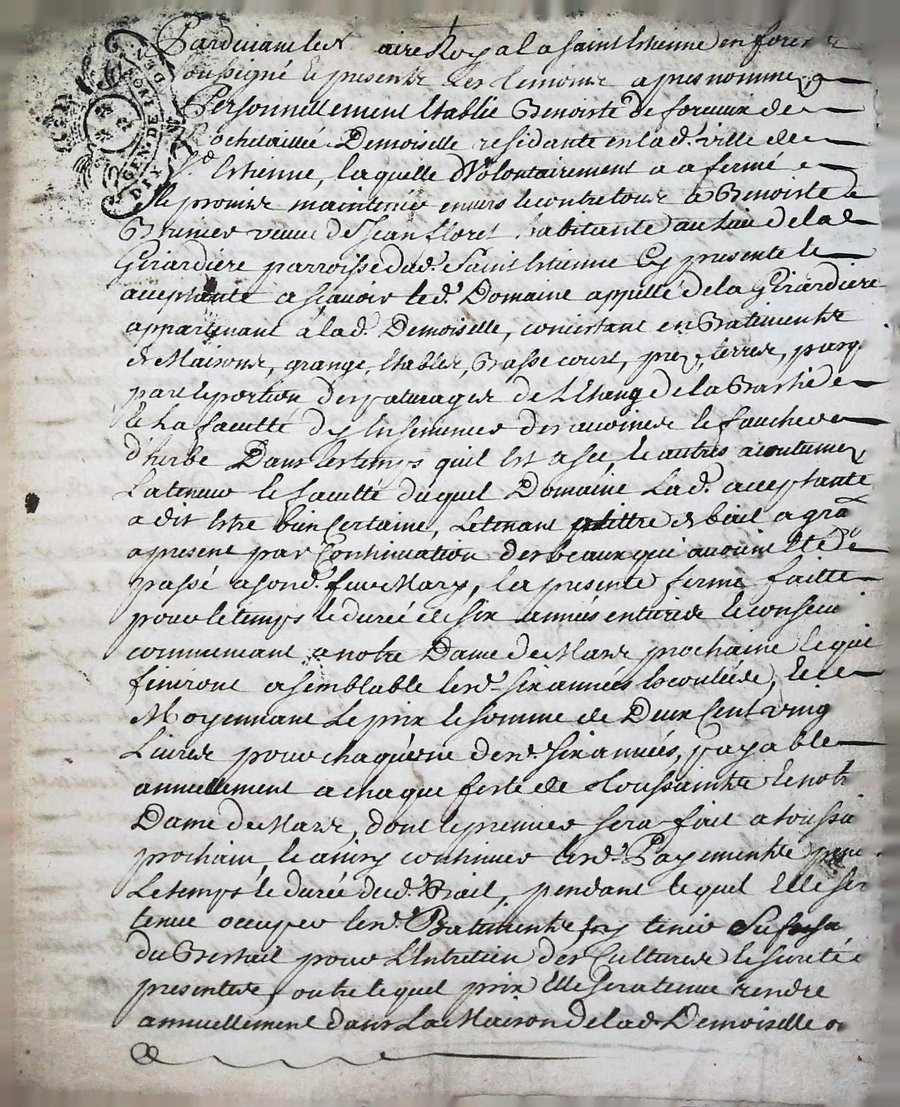 Pardevant le aire Royal a Saint Etienne en forez
soussigné et presents les temoins apres nommez
Personnellement Etablie Benoiste de forieux de
Rochetaillée Demoiselle residante en lad. ville de
St. Etienne, laquelle Volontairement a afermé e
et promis maintenir envers et contre tous à Benoiste
veuve de Jean floret habitante au lieu de la
Girardiere parroisse dud. Saint Etienne Cy presente et
acceptante a scavoir led. Domaine appellé de la Girardiere
appartenant à lad. Demoiselle, consistant en Batiments
de Maisons, grange, Etables, Basse court, prez, terres,
par et portion des paturages de L'Etang de la Bastide
et La faculté d'y Ensemencer des et faucher
d'herbe Dans les temps quil Est a sec et autres acoutumez
La teneur et faculté duquel Domaine Lad. acceptante
a dit Etre bien Certaine, Le tenant a tittre de bail a gra
a present par Continuation des beaux qui avoint Eté
passé a sond. feu Mary, la presente ferme faitte
pour le temps et durée de six années entieres et consecu
commencant a notre Dame de Mars prochaine et qui
finiront a semblable lesd. six années Ecoulées, et ce
Moyennant Le prix et somme de Deux Cent vingt
Livres pour chaqu'une desd. six années, payable
annuellement a chaque feste de Toussaints et notr
Dame de Mars, dont le premier sera fait a toussa
prochain, et ainsy continuer lesd. Payements
Le temps et durée dud. Bail, pendant lequel Elle ser
tenue occuper lesd. Batiments y tenir
du Besteil pour L'Entretien des Cultures et sureté
presentes, outre lequel prix Elle sera tenue rendre
annuellement dans La Maison de lad. Demoiselle